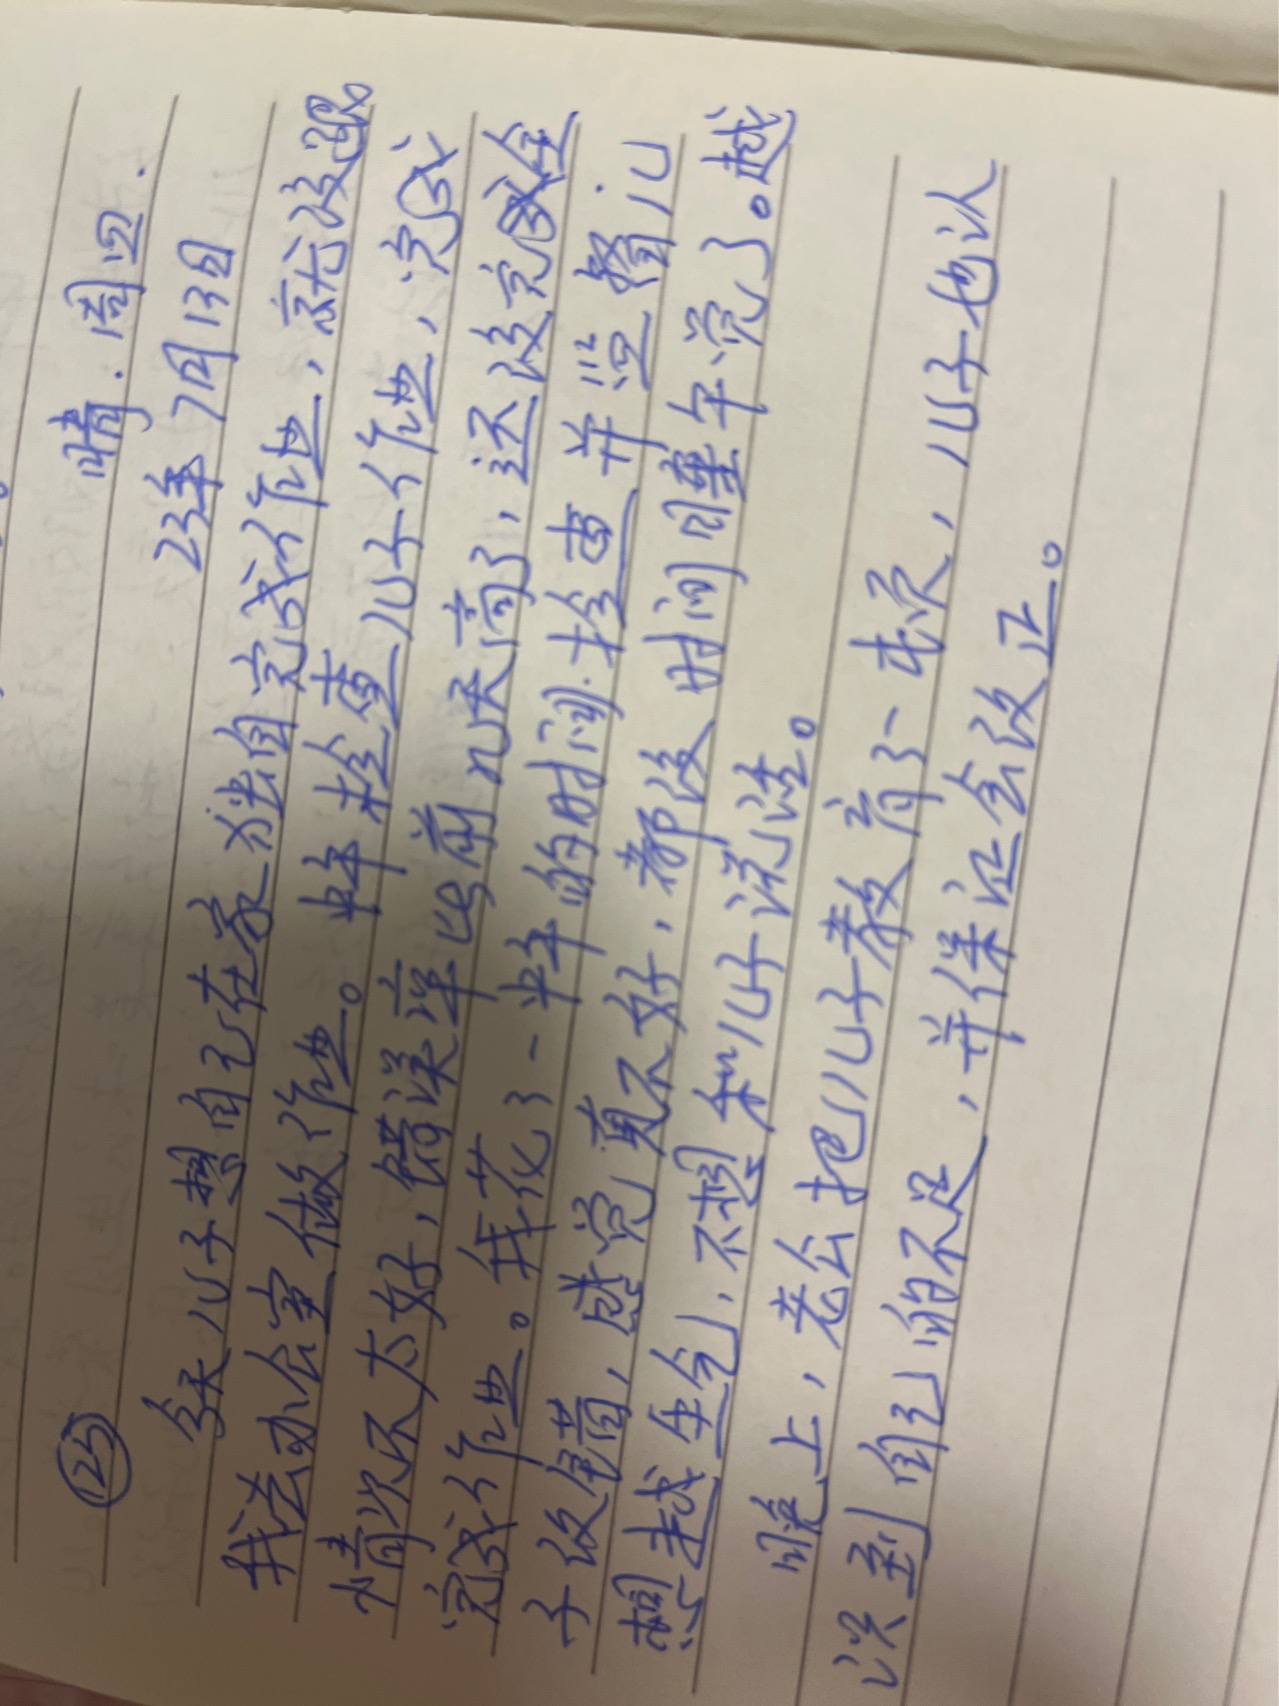 (25) 晴.周四.
23年7月13日
今天儿子想自己在家独自完成作业,就没跟
我去办公室做作业。中午检查儿子作业,完成
情况不太好,错误率比前几天高了,还没完成全
完成作业。我花了一中午的时间.检查并监督儿
子改错,感觉真不好,都没时间睡午觉了。越
想越生气,不想和儿子说话。
晚上,老公把儿子教育了一顿,儿子也认
识到自己的不足,并保证会改正。